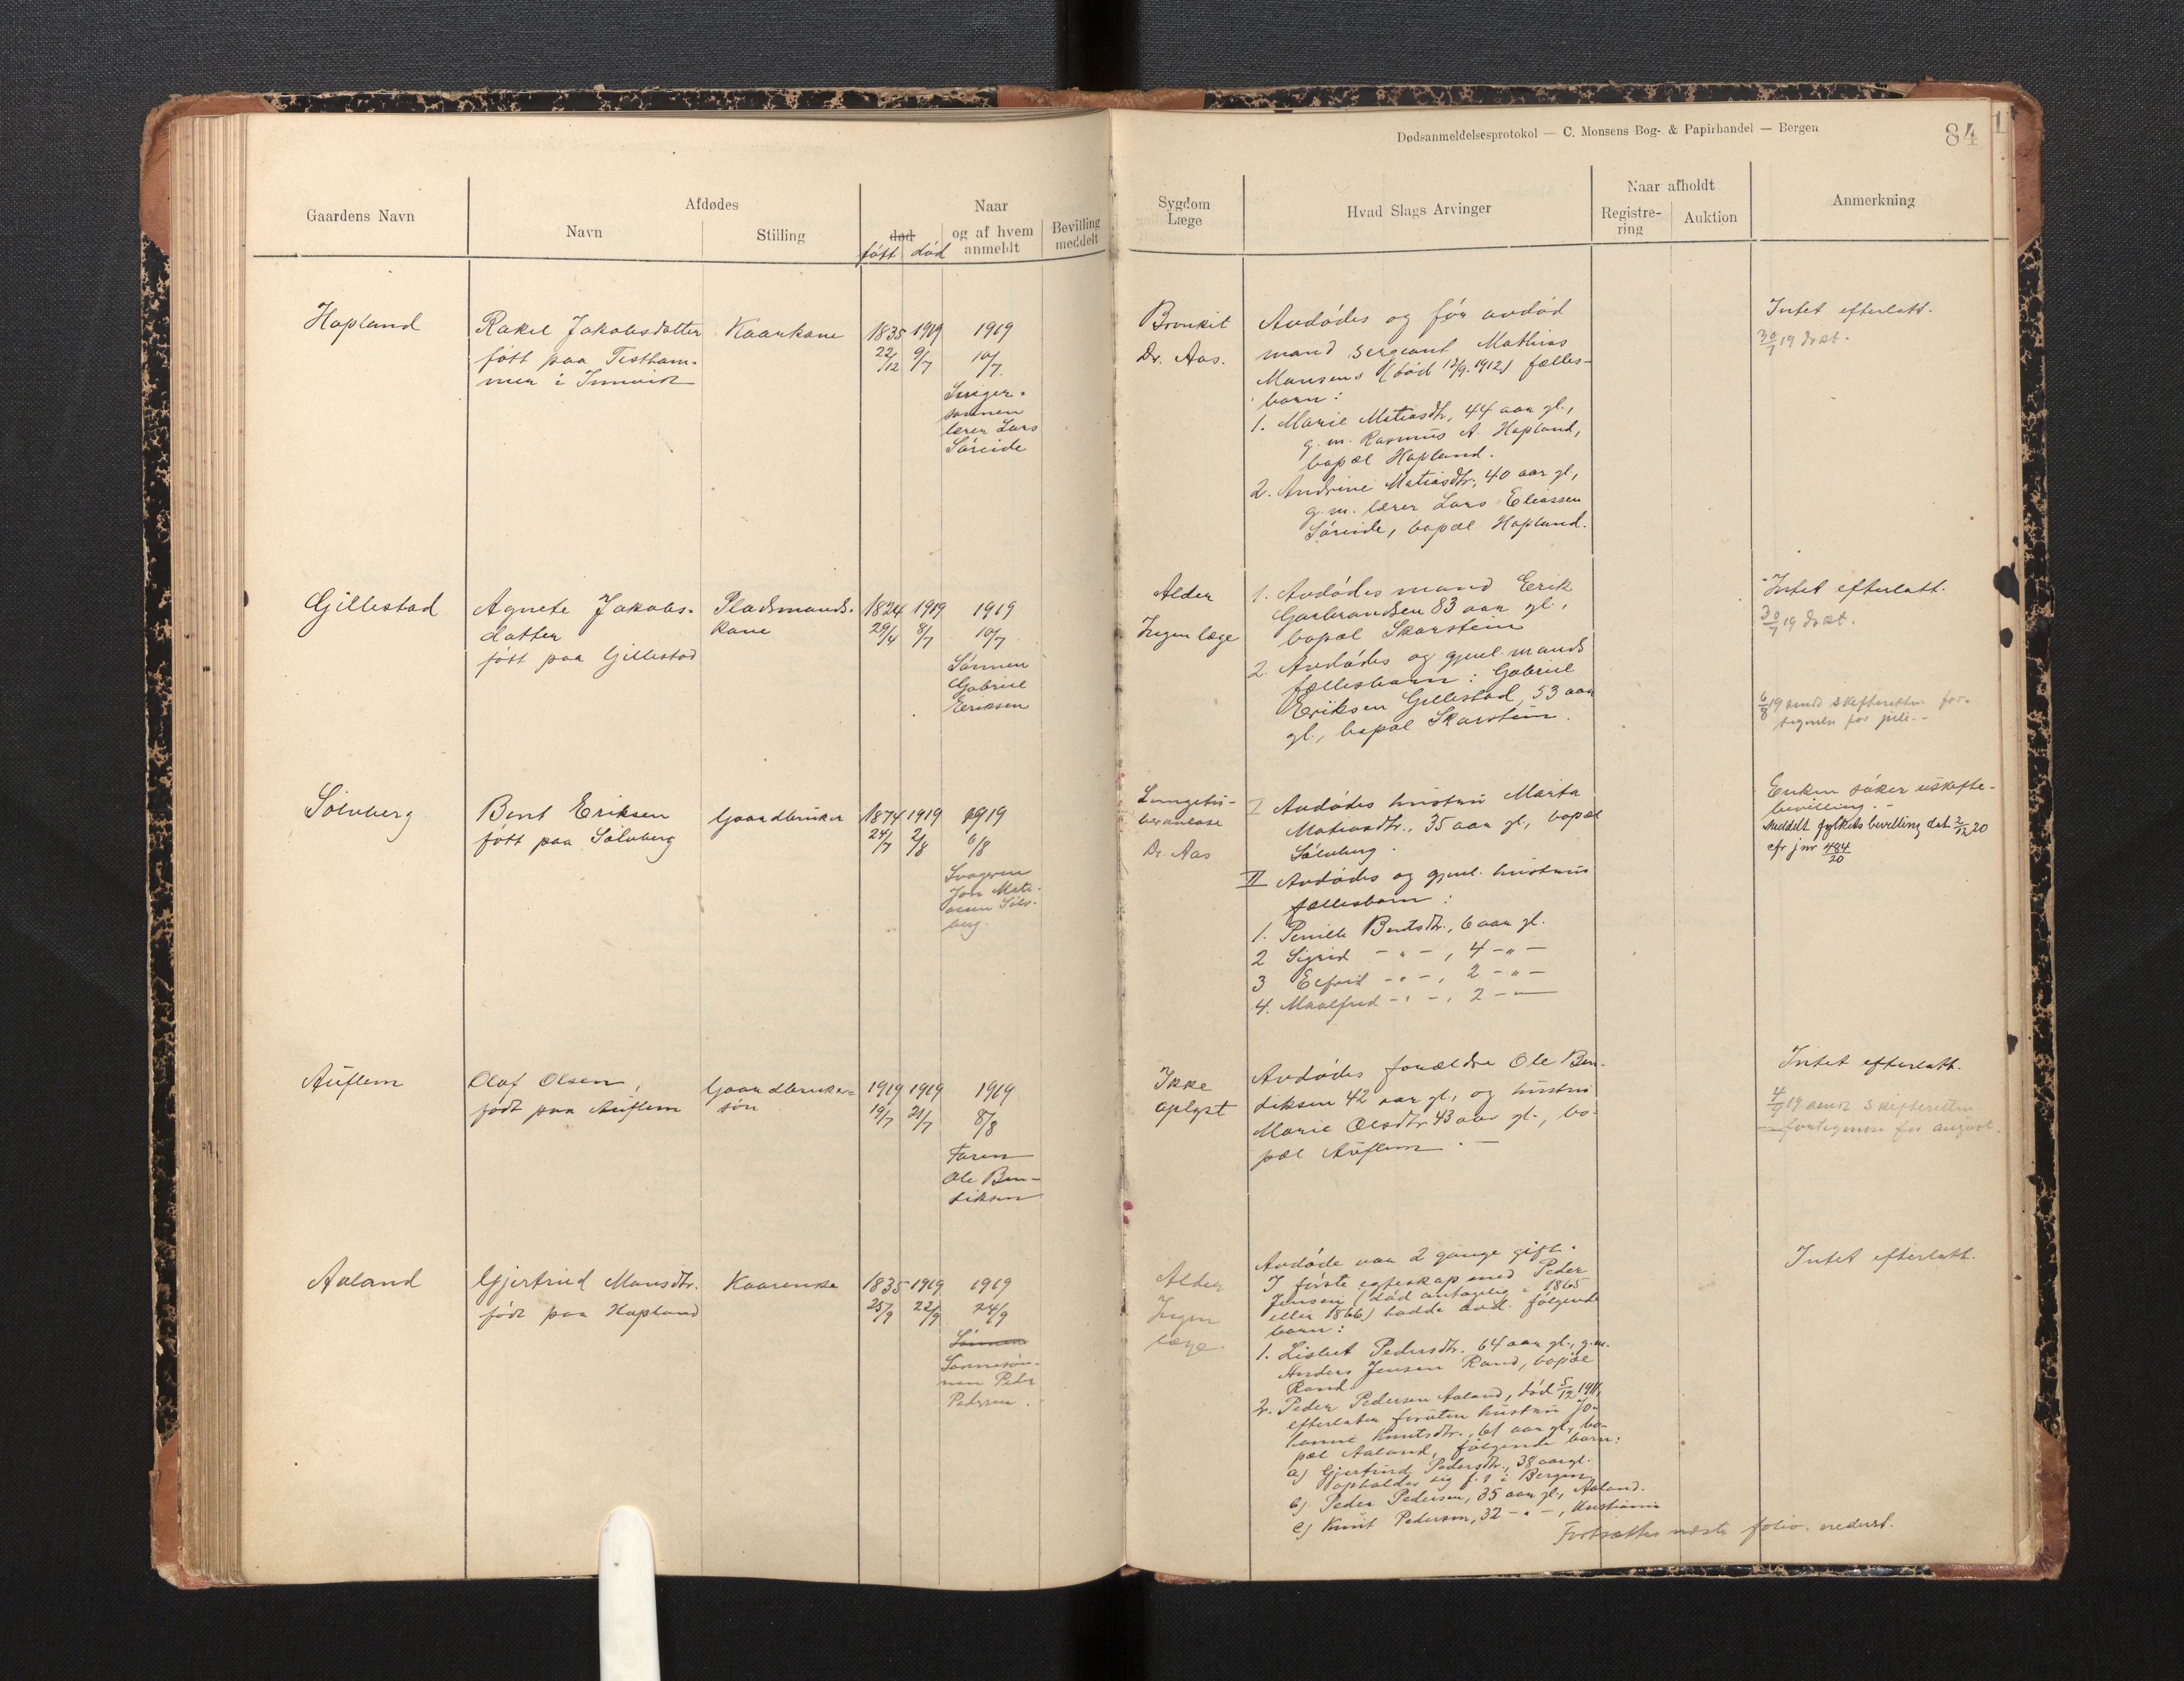 Dødsanmeldelsesprotokol — C. Monsens Bog- & Papirhandel — Bergen
84
Gaardens Navn
Afdødes
Navn
Stilling
død
født død
Naar
og af hvem
anmeldt
Bevilling
meddelt
Sygdom
Læge
Hvad Slags Arvinger
Naar afholdt
Registre-
ring
Auktion
Anmerkning
Hopland
Rakel Jakobsdatter
født paa Tistham-
mer i Innvik
Kaarkone
1835 1919
22/12 9/7
1919
10/7
Sviger-
sønnen
lærer Lars
Søreide
Bronkit
Dr. Aas.
Avdødes og før avdød
mand sergeant Mathias
Monsens (død 12/9. 1912) fælles-
barn:
1. Marie Matiasdtr, 44 aar gl.,
g. m. Rasmus A. Hopland,
bopæl Hopland.
2. Andrine Matiasdtr, 40 aar gl.,
g. m. lærer Lars Eliassen
Søreide, bopæl Hopland.
Intet efterlatt.
30/7 19 d
Gillestad
Agnete Jakobs-
datter
født paa Gillestad
Pladsmands-
kone
1824 1919
29/4 8/7
1919
10/7
Sønnen
Gabriel
Eriksen
Alder
Ingen læge
1. Avdødes mand Erik
Garbrandsen 83 aar gl.,
bopæl Skarstein
2. Avdødes og gjenl. mands
fællesbarn: Gabriel
Eriksen Gillestad, 53 aar
gl., bopæl Skarstein.
Intet efterlatt.
30/7 19
6/8 19 sendt skifteretten for-
tegnelse for juli. -
Sølvberg
Bent Eriksen
født paa Sølvberg
Gaardbruker
1874 1919
24/7 2/8
1919
6/8
Svogeren
Jon Mati-
assen Sølv-
berg
Lungetu-
berkulose
Dr. Aas
I Avdødes hustru Marta
Matiasdtr., 35 aar gl., bopæl
Sølvberg.
II Avdødes og gjenl. hustrus
fællesbarn:
1. Pernille Bentsdtr., 6 aar gl.
2 Sigrid - " - , 4 - " -
3 - " - , 2 - " -
4. Maalfrid - " - , 2 - " -
Enken søker uskifte-
bevilling. -
Meddelt fylkets bevilling dat. 2/12 20
cfr jnr 484/20
Auflem
Olaf Olsen,
født paa Auflem
Gaardbruker-
søn
1919 1919
19/7 21/7
1919
8/8
Faren
Ole Ben-
diksen
Ikke
oplyst
Avdødes forældre Ole Ben-
diksen 42 aar gl., og hustru
Marie Olsdtr. 43 aar gl., bo-
pæl Auflem. -
Intet efterlatt.
4/9 19 sendt skifteretten
fortegnelse for august.
Aaland
Gjertrud Monsdtr.
født paa Hopland
Kaarenke
1835 1919
25/9 22/9
1919
24/9
Sønnen
Sønnesøn-
nen Peder
Pedersen.
Alder
Ingen
læge.
Avdøde var 2 gange gift.
I første egteskap med Peder
Jensen (død antagelig i 1865
eller 1866) hadde avd. følgende
barn:
1. Lisbet Pedersdtr. 64 aar gl., g. m.
Anders Jensen Rand, bopæl
Rand
2. Peder Pedersen Aaland, død 5/12 1911,
efterlater foruten hustru Jo-
hanne Knutsdtr., 61 aar gl., bo-
pæl Aaland, følgende barn:
a) Gjertrud Pedersdtr., 38 aar gl.
opholder sig f. t. i Bergen
b) Peder Pedersen, 35 aar gl., Aaland.
c) Knut Pedersen, 32 - " - , Kristiania
Fortsættes næste folio nederst.
Intet efterlatt.